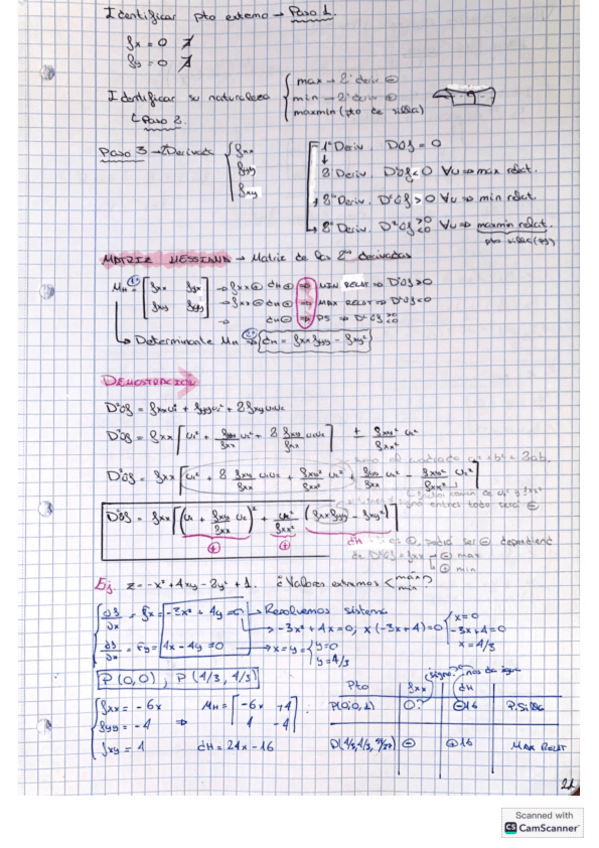 Identificar pto extremo → Paso 1.
fx = 0
fy = 0
Identificar su naturaleza { max → 2ª deriv ⊖
min → 2ª deriv ⊕
maxmin (pto de silla)
↳ Paso 2.
Paso 3 → 2ªDerivada { fxx
fyy
fxy
1ª Deriv. D'Of = 0
2ª Deriv. D²Of < 0 ∀u ⇒ max relat.
2ª Deriv. D²Of > 0 ∀u ⇒ min relat
2ª Deriv. D²Of >0 <0 ∀u ⇒ maxmin relat.
pto silla (PS)
MATRIZ HESSIANA → Matriz de las 2ªs derivadas
MH = [ fxx fyx
fxy fyy ]
→ fxx ⊕ dH ⊕ ⇒ MIN RELAT ⇒ D²Of > 0
→ fxx ⊖ dH ⊕ ⇒ MAX RELAT ⇒ D²Of < 0
→ dH ⊖ ⇒ PS ⇒ D²Of >0 <0
↳ Determinante MH ⇒ dH = fxx fyy - fxy²
DEMOSTRACION
D²Of = fxx u1² + fyy u2² + 2fxy u1u2
D²Of = fxx [ u1² + fyy/fxx u2² + 2 fxy/fxx u1u2 ] ± fxy²/fxx² u2²
D²Of = fxx [ u1² + 2 fxy/fxx u1u2 + fxy²/fxx² u2² + fyy/fxx u2² - fxy²/fxx² u2² ]
D²Of = fxx [ (u1 + fxy/fxx u2)² + u2²/fxx² (fxx fyy - fxy²) ]
⊕ ⊕ dH
de D²Of = fxx → ⊖ max
⊕ min
Ej. z = -x³ + 4xy - 2y² + 1. ¿Valores extremos < máx
min ?
∂f/∂x = fx = -3x² + 4y = 0 → Resolvemos sistema
→ -3x² + 4x = 0; x(-3x+4) = 0 { x = 0
-3x + 4 = 0
x = 4/3
∂f/∂y = fy = 4x - 4y = 0 → x = y = { y = 0
y = 4/3
P(0,0) , P(4/3, 4/3)
fxx = -6x
fyy = -4
fxy = 4
⇒ MH = [ -6x +4
4 -4 ]
dH = 24x - 16
Pto fxx dH
P(0,0,1) 0? ⊖16 P.Silla
⊖ ⊕16 MAX RELAT
21
Scanned with
CS CamScanner